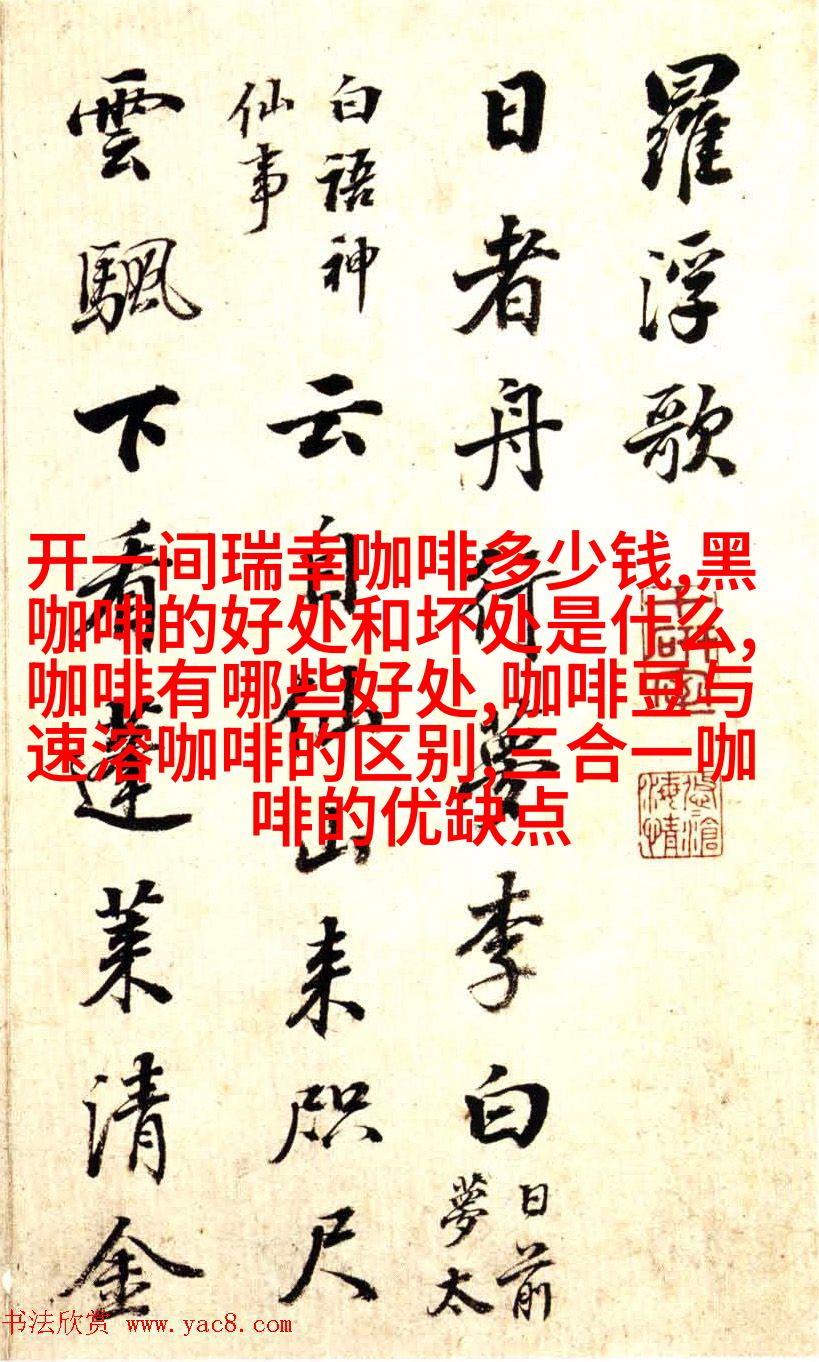 羅浮歌
日者舟行夢李白
日前
夢太
白語神
仙事
云自仙山来咫尺
雲颿下看蓬莱清金
开一间瑞幸咖啡多少钱,黑
咖啡的好处和坏处是什么,
咖啡有哪些好处,咖啡豆与
速溶咖啡的区别,三合一咖
啡的优缺点
书法欣赏 www.yac8.com